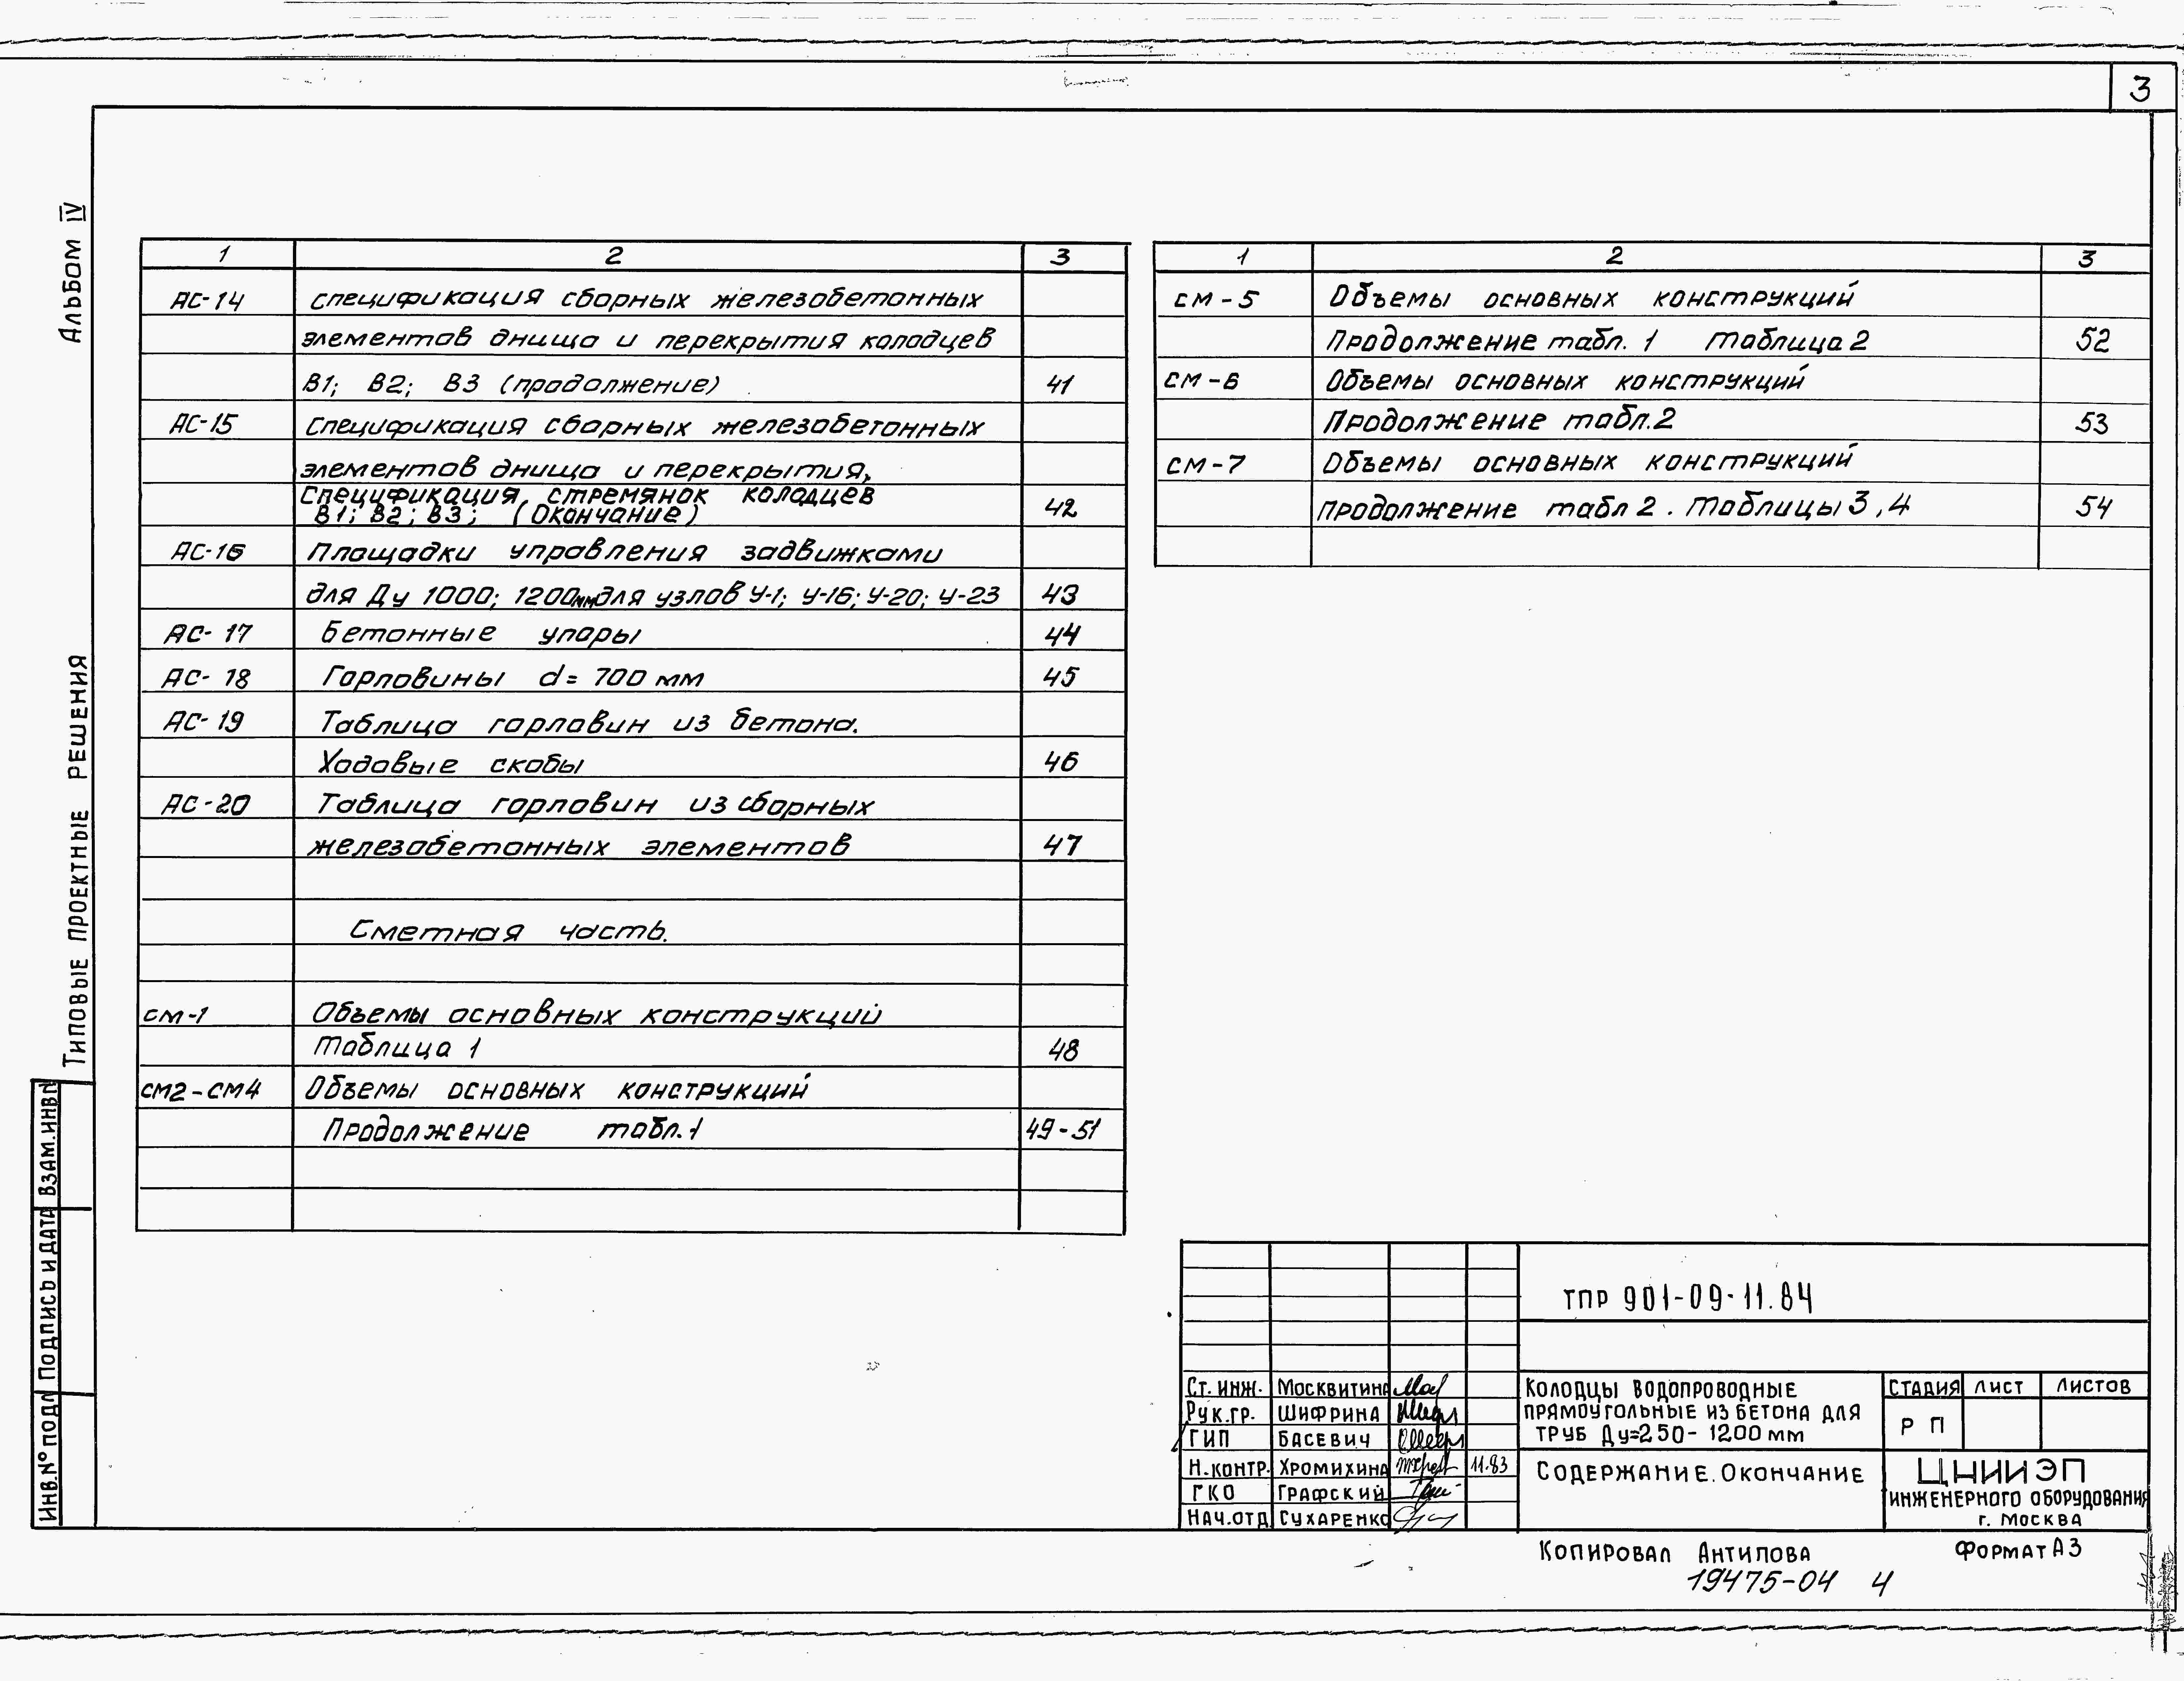 3
Альбом IV
Типовые проектные решения
Взам.инв.№
Подпись и дата
Инв.№ подл
1 2 3
АС-14 Спецификация сборных железобетонных
элементов днища и перекрытия колодцев
В1; В2; В3 (продолжение) 41
АС-15 Спецификация сборных железобетонных
элементов днища и перекрытия,
Спецификация стремянок колодцев
В1; В2; В3; (Окончание) 42
АС-16 Площадки управления задвижками
для Ду 1000; 1200мм для узлов У-1; У-16; У-20; У-23 43
АС-17 Бетонные упоры 44
АС-18 Горловины d=700 мм 45
АС-19 Таблица горловин из бетона.
Ходовые скобы 46
АС-20 Таблица горловин из сборных
железобетонных элементов 47
Сметная часть.
см-1 Объемы основных конструкций
Таблица 1 48
см2-см4 Объемы основных конструкций
Продолжение табл.1 49-51
1 2 3
см-5 Объемы основных конструкций
Продолжение табл. 1 Таблица 2 52
см-6 Объемы основных конструкций
Продолжение табл.2 53
см-7 Объемы основных конструкций
продолжение табл 2. Таблицы 3,4 54
ТПР 901-09-11.84
Ст. инж. Москвитина
Рук.гр. Шифрина
ГИП Басевич
Н.контр. Хромихина 11.83
ГКО Графский
Нач.отд Сухаренко
Колодцы водопроводные
прямоугольные из бетона для
труб Ду=250-1200 мм
Стадия Лист Листов
РП
Содержание. Окончание
ЦНИИЭП
инженерного оборудования
г. Москва
Копировал Антипова
Формат А3
19475-04 4